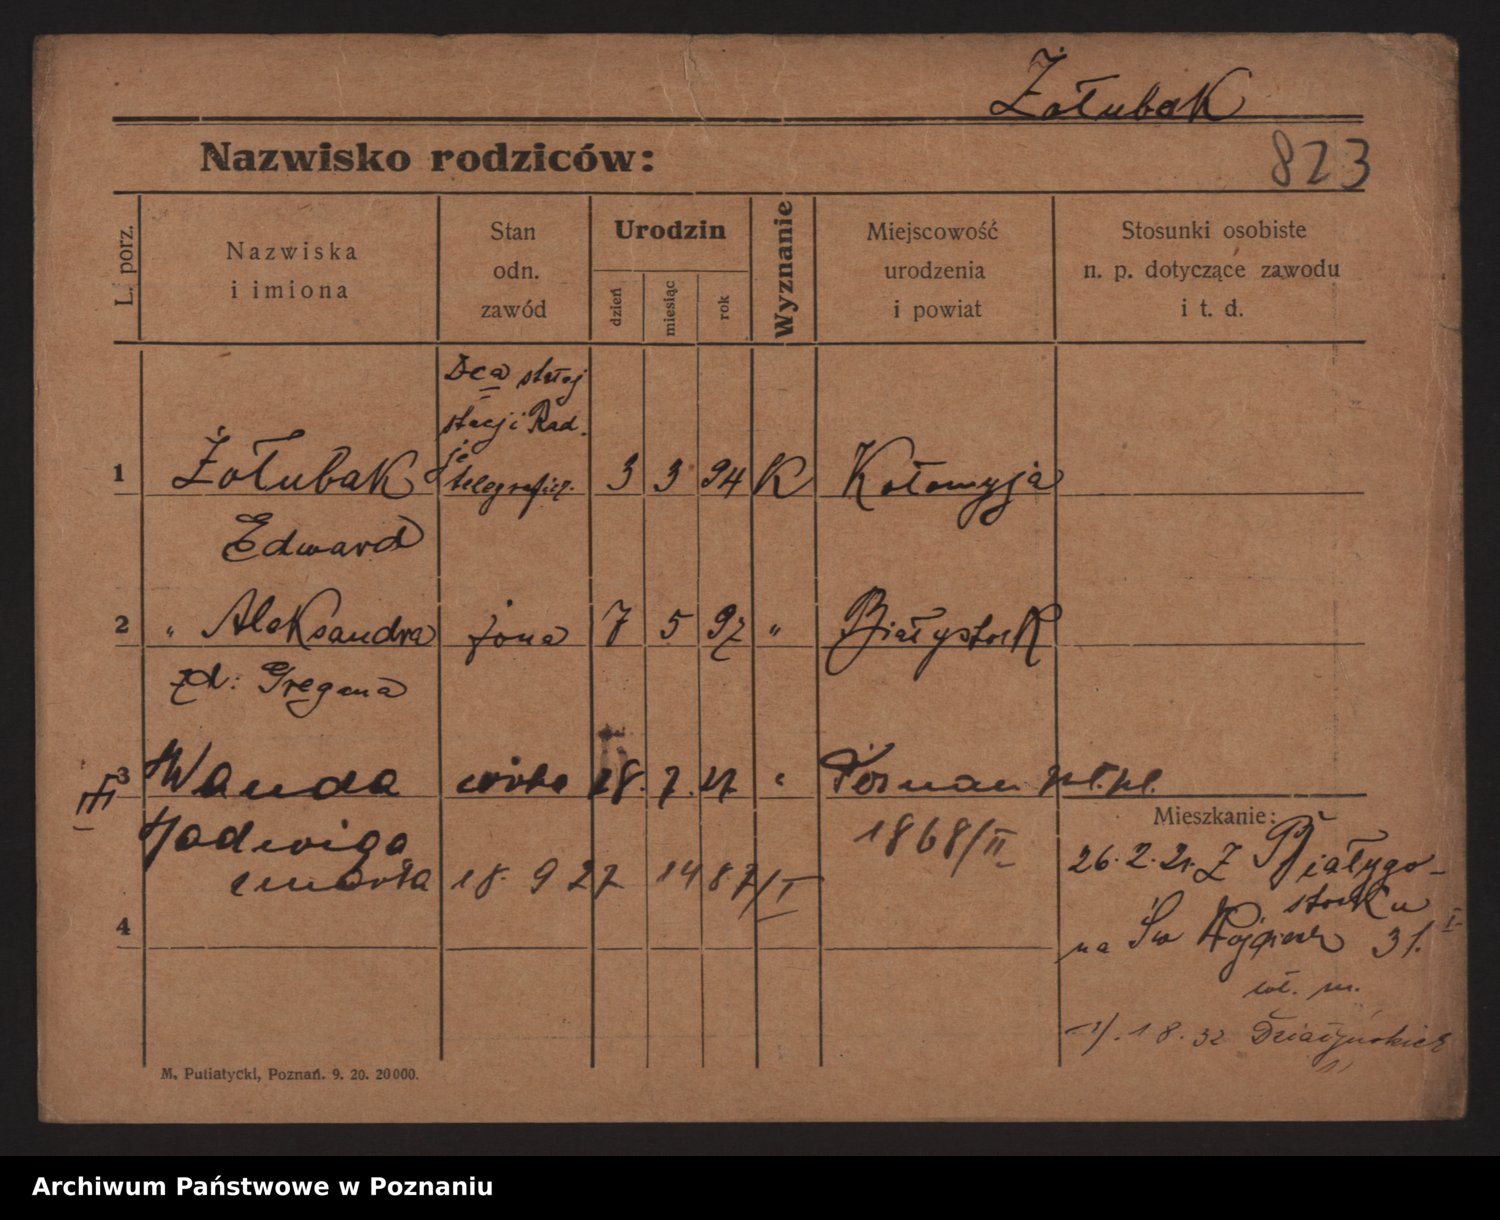 Żołubak
Nazwisko rodziców:
823
L. porz.
Nazwiska
i imiona
Stan
odn.
zawód
Urodzin
dzień
miesiąc
rok
Wyznanie
Miejscowość
urodzenia
i powiat
Stosunki osobiste
n. p. dotyczące zawodu
i t. d.
Dca stałej
stacji Rad.
je
telegraficz.
1 Żołubak 3 3 94 K Kołomyja
Edward
2 " Aleksandra żona 7 5 97 " Białystok
zd:
III
3 Wanda córka 18. 7. 27 " Poznań
Jadwiga
1868/II
umarła 18. 9 27 1487/I
4
Mieszkanie:
26. 2. 21. z Białego-
stoku
na Św Wojciech 31. I
1 8. 32 Działyńskich
11
M. Putiatycki, Poznań. 9. 20. 20000.
Archiwum Państwowe w Poznaniu